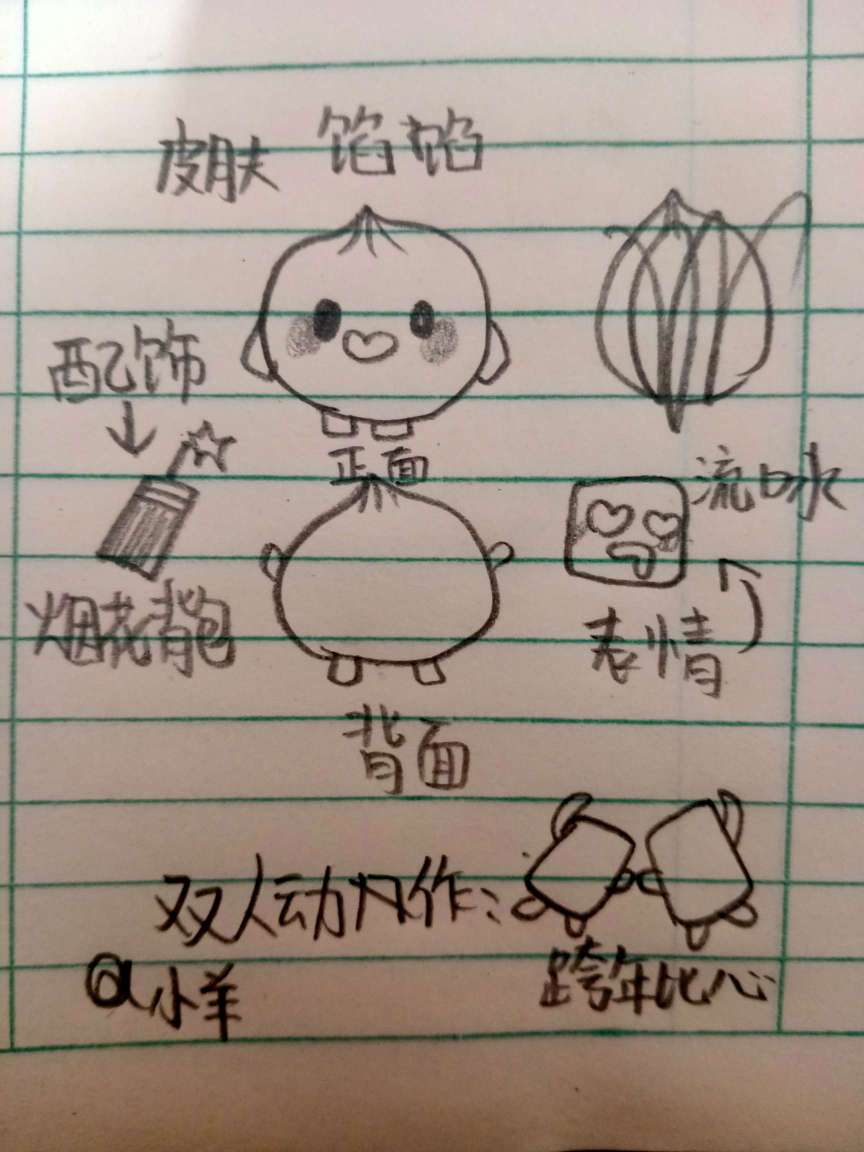 皮肤 馅馅
配饰
正面
流口水
烟花背包
表情
背面
双人动作：
跨年比心
@小羊